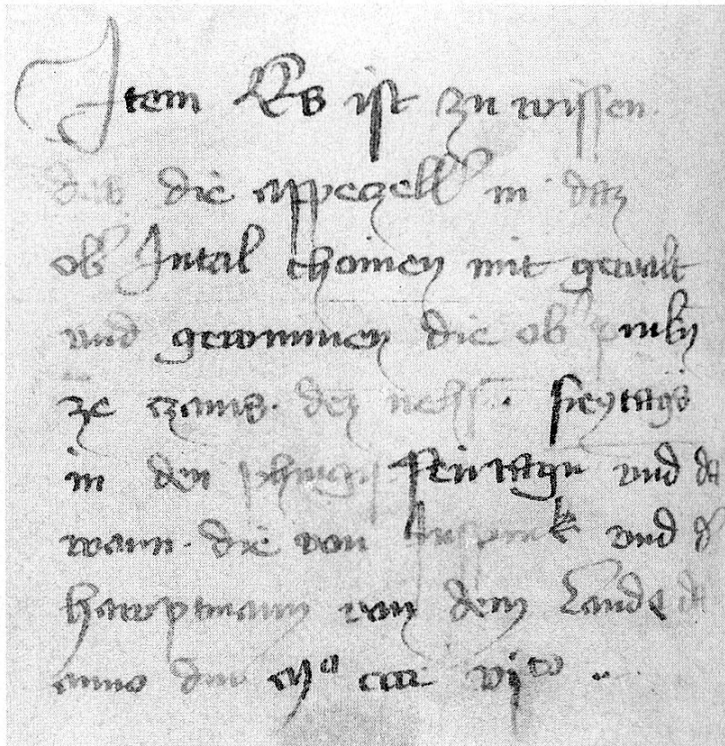 Item Es ist zu wissen.
das die appezell in daz
ob Intal chomen mit gewalt
und gewunnen die ob prukn
ze zams. dez nehst. freytags
in den phingst feirtagn und da
wann. die von Inspruk und d
hawptmann von dem Lande da
anno dni Mº cccc viᵗᵒ ..